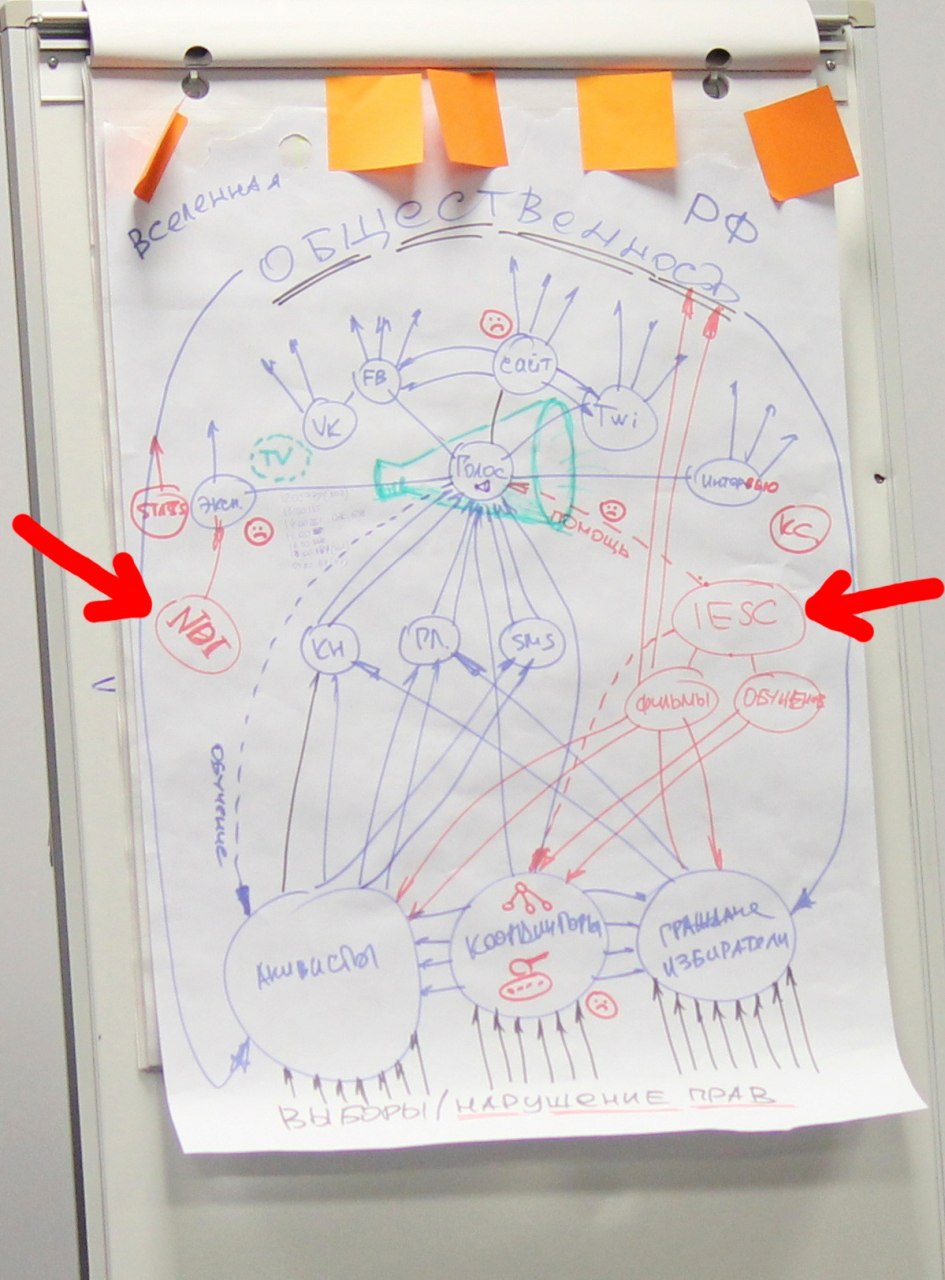 Вселенная
ОБЩЕСТВенносТЬ
РФ
сайт
FB
VK
Twi
TV
Голос
Интервью
STATS
Эксп.
КС
ПОМОЩЬ
NDI
IESC
КН
ГЛ.
SMS
Фильмы
Обучение
Обучение
Активисты
Координторы
Граждане
избиратели
ВЫБОРЫ/НАРУШЕНИЕ ПРАВ